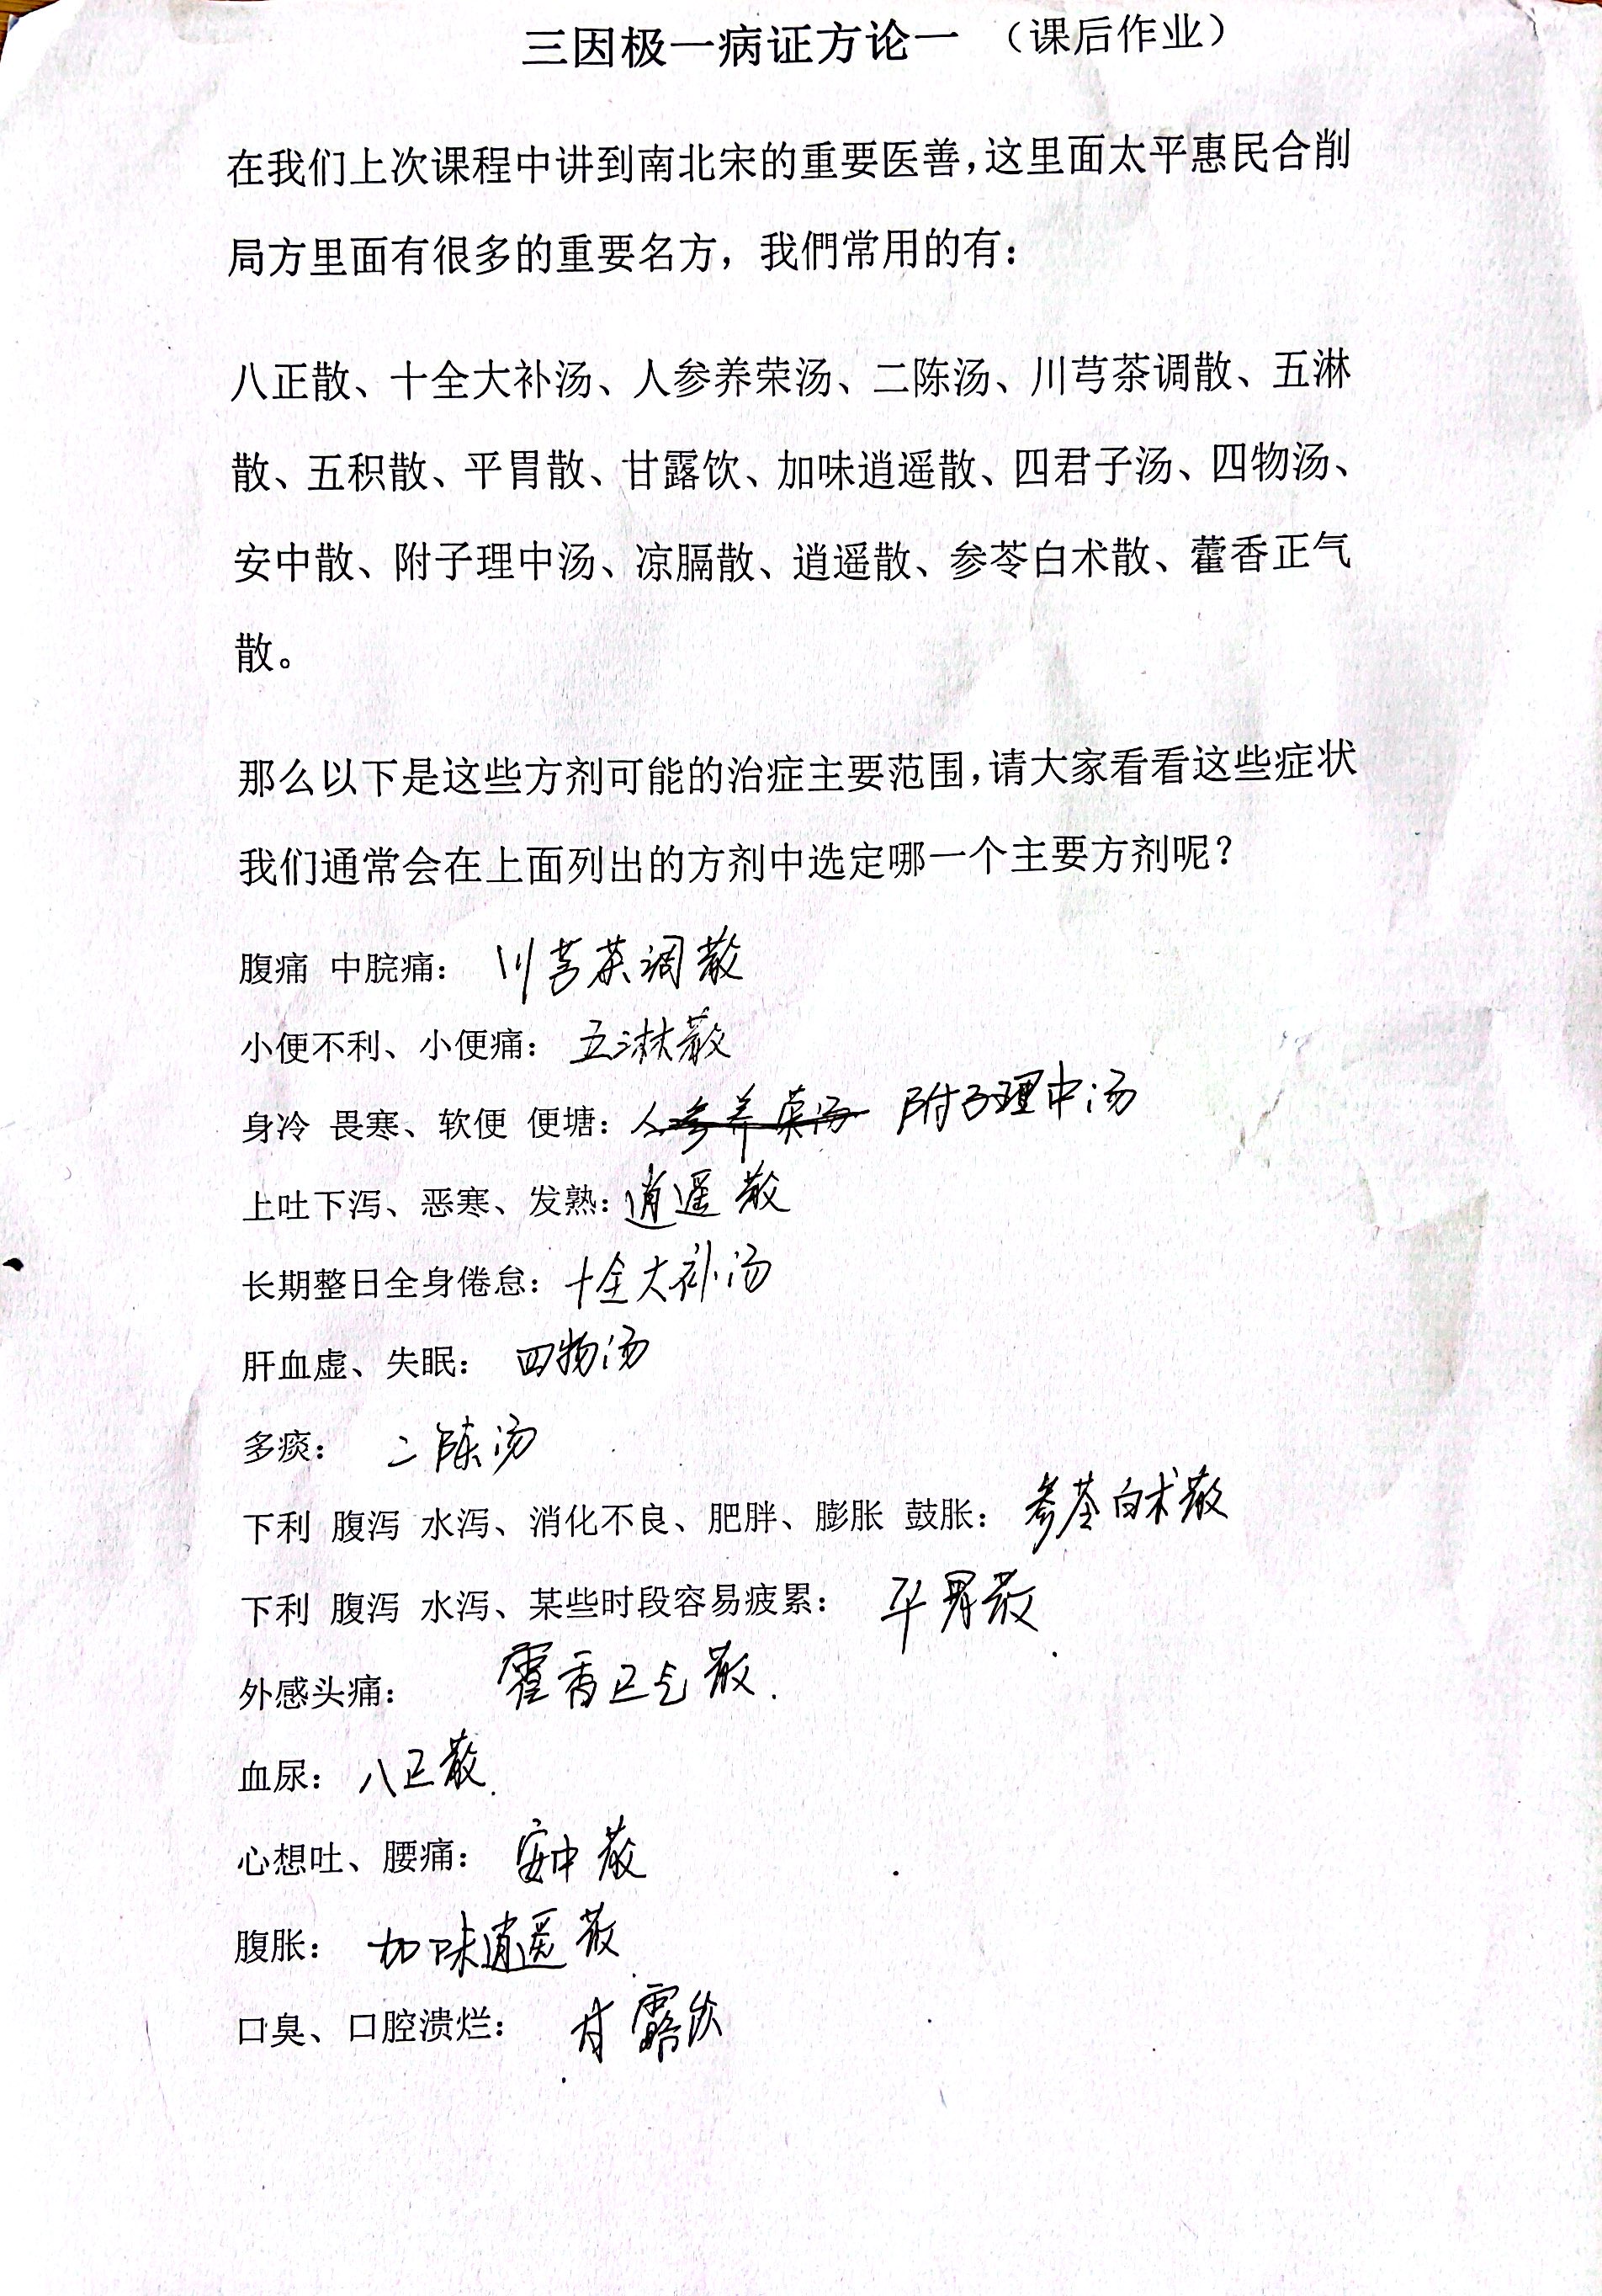 三因极一病证方论一 （课后作业）
在我们上次课程中讲到南北宋的重要医善，这里面太平惠民合削
局方里面有很多的重要名方，我們常用的有：
八正散、十全大补汤、人参养荣汤、二陈汤、川芎茶调散、五淋
散、五积散、平胃散、甘露饮、加味逍遥散、四君子汤、四物汤、
安中散、附子理中汤、凉膈散、逍遥散、参苓白术散、藿香正气
散。
那么以下是这些方剂可能的治症主要范围，请大家看看这些症状
我们通常会在上面列出的方剂中选定哪一个主要方剂呢？
腹痛 中脘痛： 川芎茶调散
小便不利、小便痛： 五淋散
身冷 畏寒、软便 便塘：人参养荣汤 附子理中汤
上吐下泻、恶寒、发熟：逍遥散
长期整日全身倦怠：十全大补汤
肝血虚、失眠： 四物汤
多痰： 二陈汤
下利 腹泻 水泻、消化不良、肥胖、膨胀 鼓胀： 参苓白术散
下利 腹泻 水泻、某些时段容易疲累： 平胃散.
外感头痛： 霍香正气散.
血尿： 八正散.
心想吐、腰痛： 安中散
腹胀： 加味逍遥散.
口臭、口腔溃烂： 甘露饮